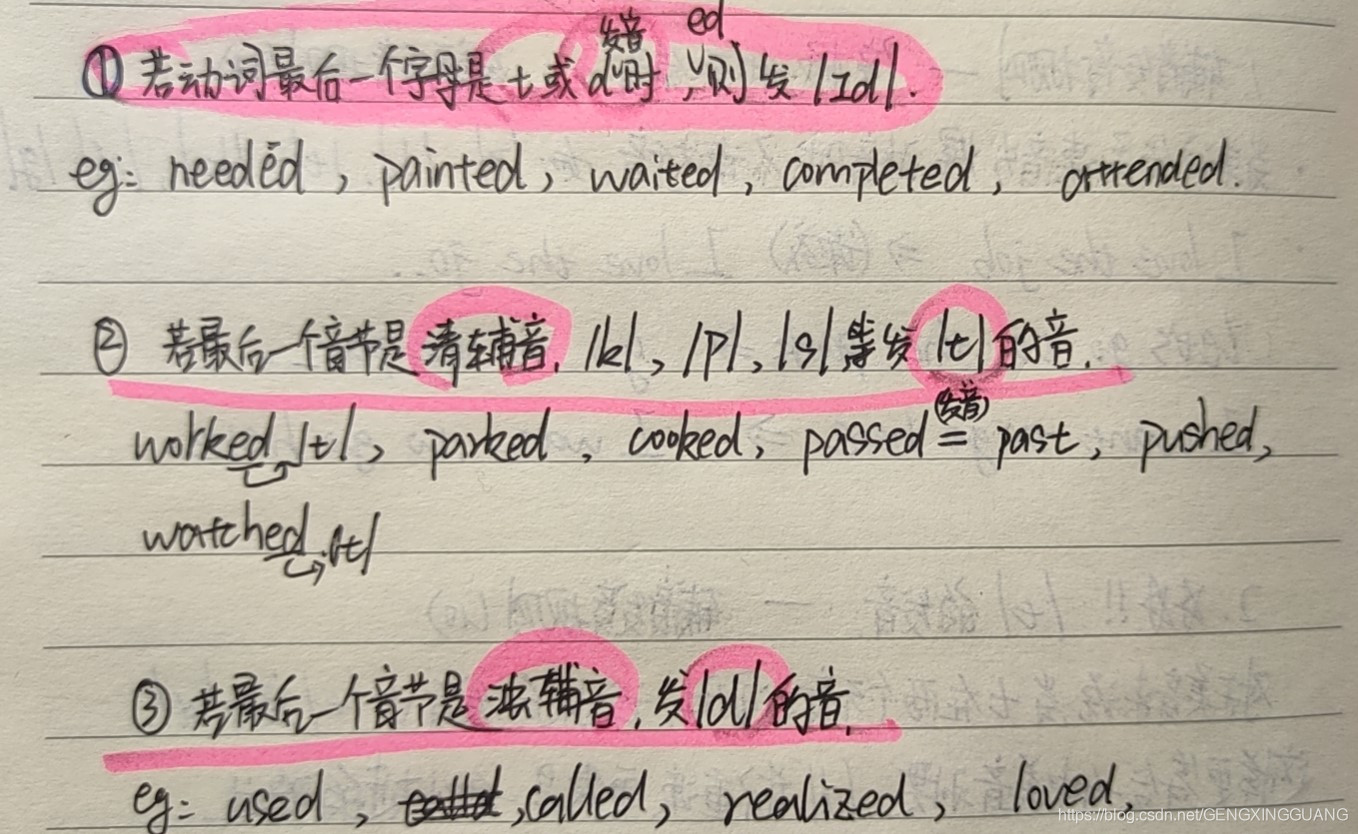 ① 若动词最后一个字母是t或d发音时,ed则发/Id/.
eg: needed, painted, waited, completed, attended.
② 若最后一个音节是清辅音, /k/, /p/, /s/等发/t/的音.
worked /t/, parked, cooked, passed =(发音) past, pushed,
watched /t/
③ 若最后一个音节是浊辅音, 发/d/的音.
eg: used, called, realized, loved,
https://blog.csdn.net/GENGXINGGUANG